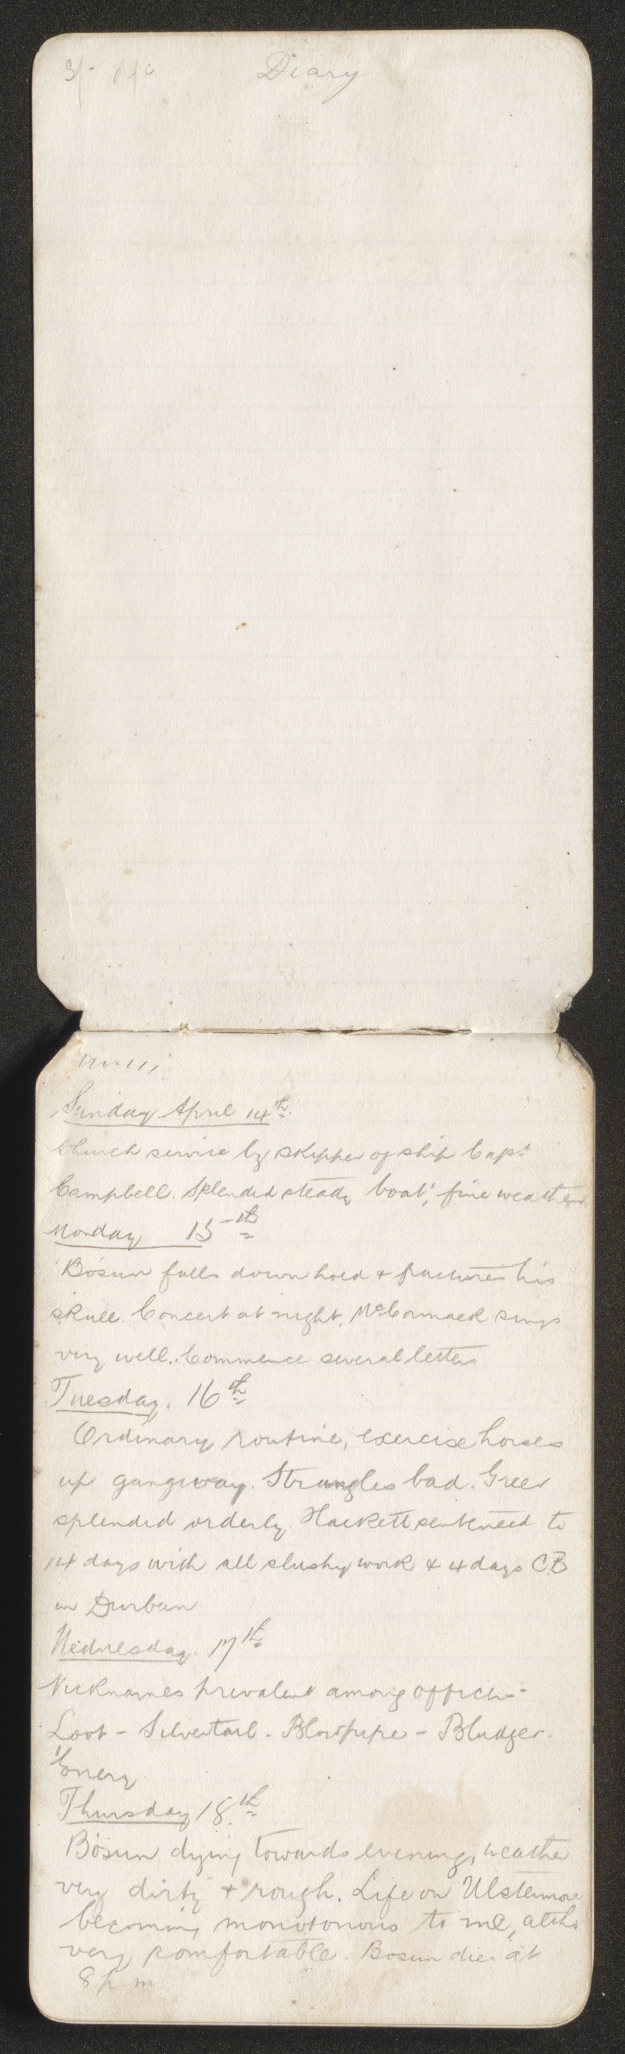 3/- Diary
Sunday April 14th
Church service by skipper of ship Capt
Campbell. Splendid steady boat, fine weather
Monday 15th
Bósun falls down hold & fractures his
skull. Concert at night. McCormack sings
very well. Commence several letters
Tuesday. 16th
Ordinary routine, exercise horses
up gangway. Strangles bad. Greer
splendid orderly Hackett sentenced to
14 days with all slushy work & 4 days C.B
in Durban
Wednesday 17th
Nicknames prevalent among officers -
Loot - Silvertail - Blowpipe - Bludger -

Thursday 18th
Bósun dying towards evening, weather
very dirty & rough. Life on Ulstermore
becoming monotonous to me, altho
very comfortable. Bosun dies at
8 p m